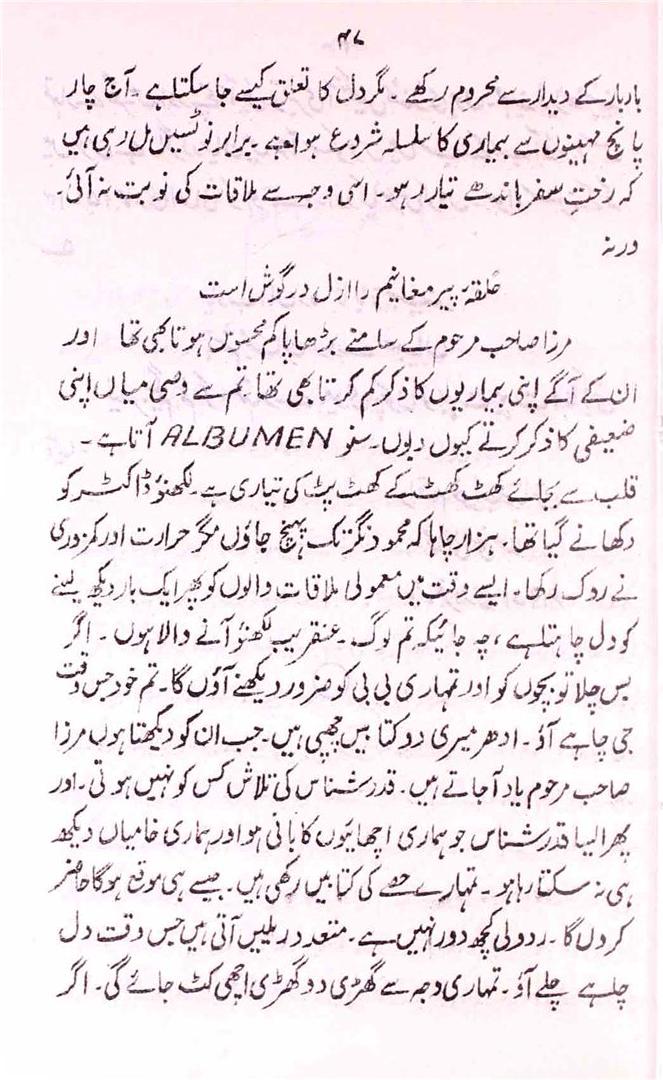 ۴۷
بار بار کے دیدار سے محروم رکھے۔ مگر دل کا تعلق کیسے جا سکتا ہے۔ آج چار
پانچ مہینوں سے بیماری کا سلسلہ شروع ہوا ہے۔ برابر نوٹسیں مل رہی ہیں
کہ رختِ سفر باندھے تیار رہو۔ اسی وجہ سے ملاقات کی نوبت نہ آئی۔
ورنہ
حلقۂ پیر مغانیم را ازل در گوش است
مرزا صاحب مرحوم کے سامنے بڑھاپا کم محسوس ہوتا بھی تھا اور
ان کے آگے اپنی بیماریوں کا ذکر کم کرتا بھی تھا تم سے وصی میاں اپنی
ضعیفی کا ذکر کرتے کیوں دبوں۔ سنو ALBUMEN آتا ہے۔
قلب سے بجائے کھٹ کھٹ کے کھٹ پٹ کی تیاری ہے۔ لکھنؤ ڈاکٹر کو
دکھانے گیا تھا۔ ہزار چاہا کہ محمود نگر تک پہنچ جاؤں مگر حرارت اور کمزوری
نے روک رکھا۔ ایسے وقت میں معمولی ملاقات والوں کو پھر ایک بار دیکھ لینے
کو دل چاہتا ہے، چہ جائیکہ تم لوگ۔ عنقریب لکھنؤ آنے والا ہوں۔ اگر
بس چلا تو بچوں کو اور تمہاری بی بی کو ضرور دیکھنے آؤں گا۔ تم خود جس وقت
جی چاہے آؤ۔ ادھر میری دو کتابیں چھپی ہیں۔ جب ان کو دیکھتا ہوں مرزا
صاحب مرحوم یاد آ جاتے ہیں۔ قدر شناس کی تلاش کس کو نہیں ہوتی۔ اور
پھر ایسا قدر شناس جو ہماری اچھائیوں کا بانی ہو اور ہماری خامیاں دیکھ
ہی نہ سکتا رہا ہو۔ تمہارے حصے کی کتابیں رکھی ہیں۔ جیسے ہی موقع ہوگا حاضر
کر دوں گا۔ ردولی کچھ دور نہیں ہے۔ متعدد ریلیں آتی ہیں جس وقت دل
چاہے چلے آؤ۔ تمہاری وجہ سے گھڑی دو گھڑی اچھی کٹ جائے گی۔ اگر